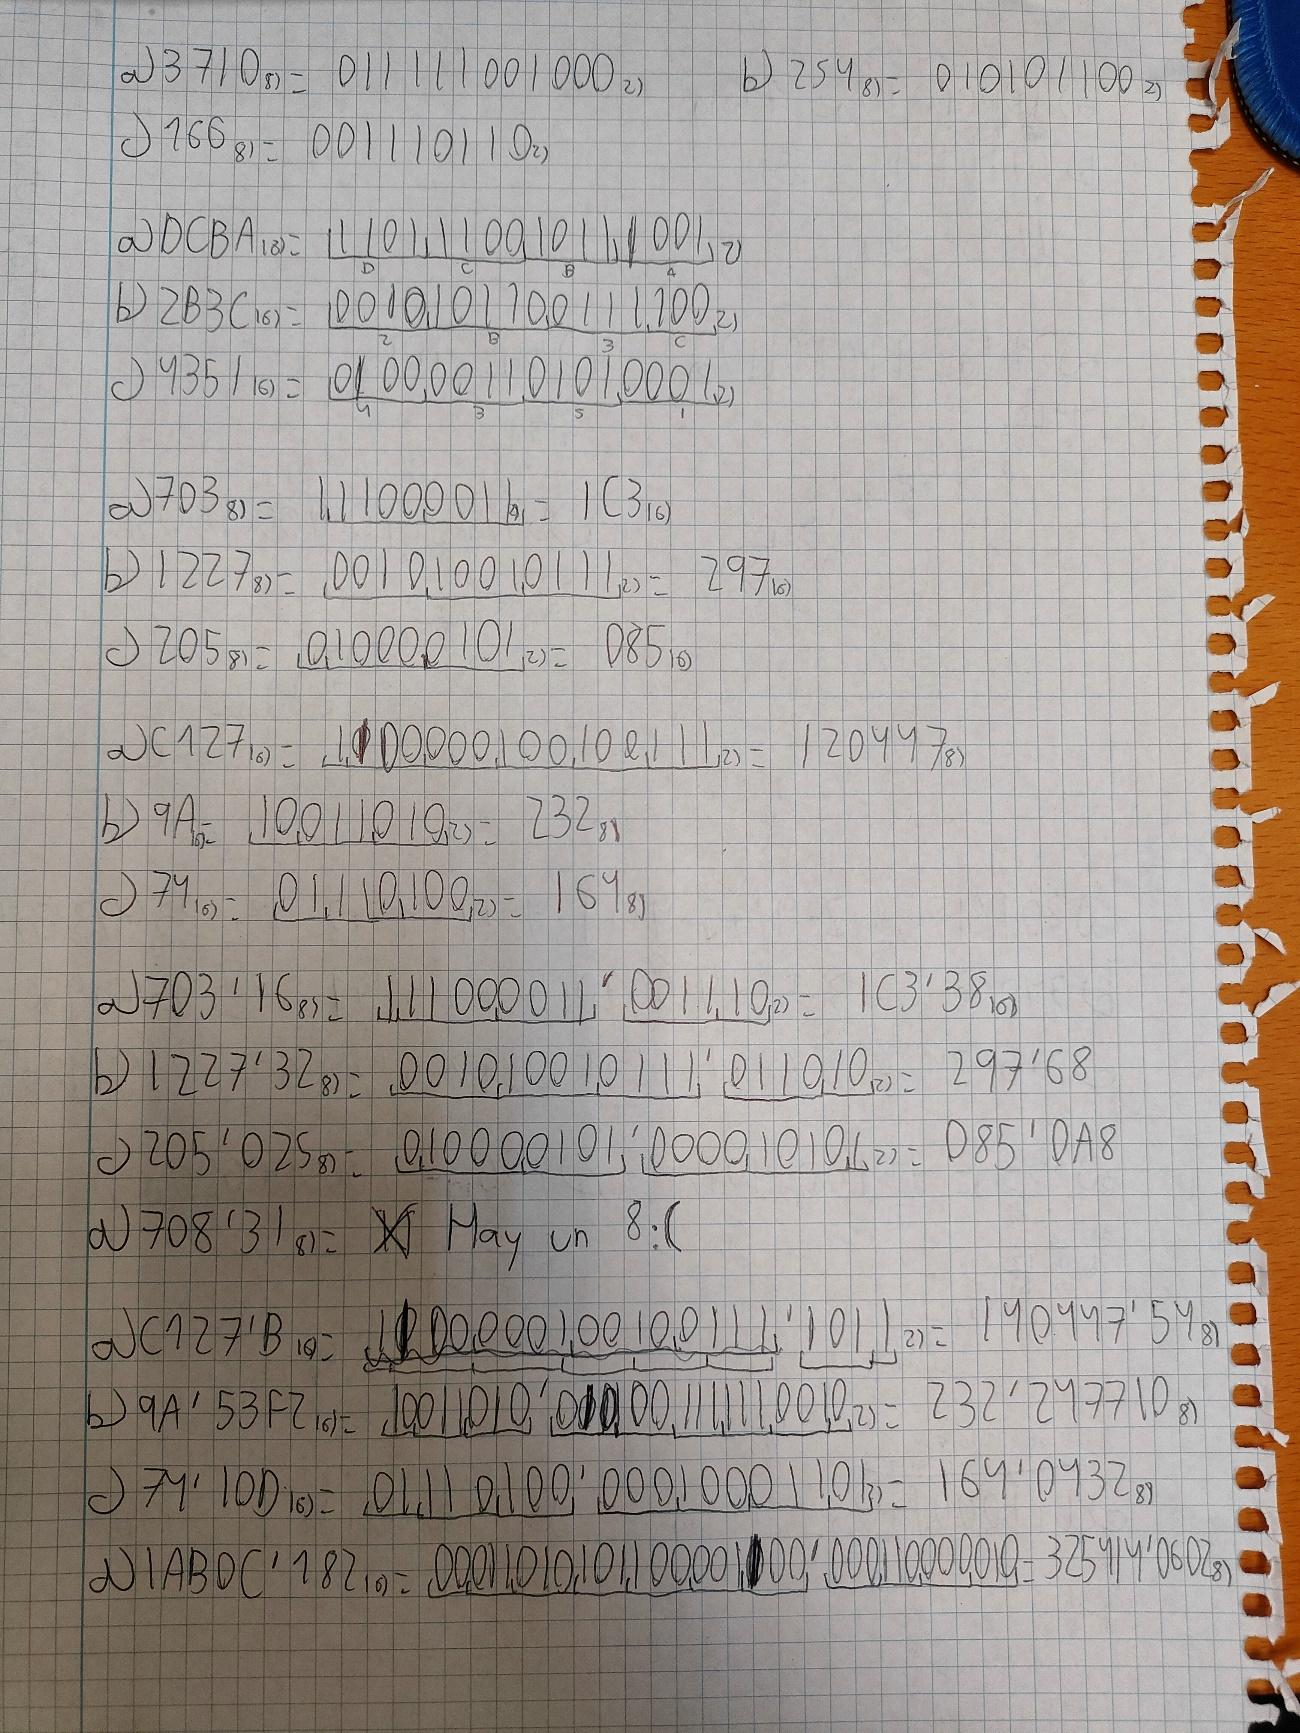 a) 3710 8) = 011111001000 2)   b) 254 8) = 010101100 2)
c) 166 8) = 001110110 2)
a) DCBA 16) = 1101110010111001 2)
D C B A
b) 2B3C 16) = 0010101100111100 2)
2 B 3 C
c) 4351 16) = 0100001101010001 2)
4 3 5 1
a) 703 8) = 111000011 2) = 1C3 16)
b) 1227 8) = 001010010111 2) = 297 16)
c) 205 8) = 010000101 2) = 085 16)
a) C127 16) = 1100000100100111 2) = 120447 8)
b) 9A 16) = 10011010 2) = 232 8)
c) 74 16) = 01110100 2) = 164 8)
a) 703'16 8) = 111000011'001110 2) = 1C3'38 16)
b) 1227'32 8) = 001010010111'011010 2) = 297'68
c) 205'025 8) = 010000101'000010101 2) = 085'0A8
a) 708'31 8) = X Hay un 8 :(
a) C127'B 16) = 1100000100100111'1011 2) = 140447'54 8)
b) 9A'53F2 16) = 10011010' 2) = 232'247710 8)
c) 74'10D 16) = 01110100'000100001101 2) = 164'0432 8)
a) 1AB0C'182 16) = '000110000010 = 325414'0602 8)